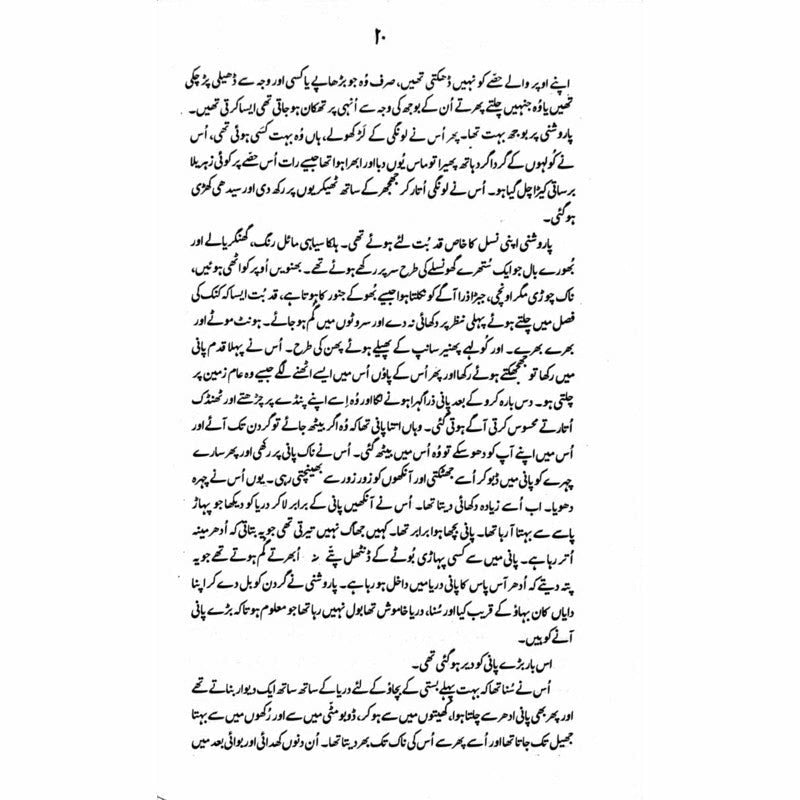 ۲۰
اپنے اوپر والے حصّے کو نہیں ڈھکتی تھیں، صرف وُہ جو بڑھاپے یا کسی اور وجہ سے ڈھیلی پڑ چکی
تھیں یا وُہ جنہیں چلتے پھرتے اُن کے بوجھ کی وجہ سے اُنہی پر تھکان ہو جاتی تھی ایسا کرتی تھیں۔
پاروشنی پر بوجھ بہت تھا۔ پھر اُس نے لونگی کے لَڑ کھولے، ہاں وُہ بہت کَسی ہوئی تھی، اُس
نے کُولہوں کے گرداگرد ہاتھ پھیرا تو ماس یُوں دبا اور ابھرا ہوا تھا جیسے رات اُس حصّے پر کوئی زہریلا
برساتی کیڑا چل گیا ہو۔ اُس نے لونگی اُتار کر جھجھر کے ساتھ ٹھیکریوں پر رکھ دی اور سیدھی کھڑی
ہو گئی۔
پاروشنی اپنی نسل کا خاص قد بُت لئے ہوئے تھی۔ ہلکا سیاہی مائل رنگ، گھنگریالے اور
بھُورے بال جو ایک سُتھرے گھونسلے کی طرح سر پر رکھے ہوئے تھے۔ بھنویں اُوپر کو اٹھی ہوئیں،
ناک چوڑی مگر اونچی، جبڑا ذرا آگے کو نکلتا ہوا جیسے بھُوکے جنور کا ہوتا ہے، قد بُت ایسا کہ کنک کی
فصل میں چلتے ہوئے پہلی نظر پر دکھائی نہ دے اور سروٹوں میں گُم ہو جائے۔ ہونٹ موٹے اور
بھرے بھرے۔ اور کُولہے پھنیر سانپ کے پھیلے ہوئے پھن کی طرح۔ اُس نے پہلا قدم پانی
میں رکھا تو جھجھکتے ہوئے رکھا اور پھر اُس کے پاؤں اُس میں ایسے اٹھنے لگے جیسے وہ عام زمین پر
چلتی ہو۔ دس بارہ کرو کے بعد پانی ذرا گہرا ہونے لگا اور وُہ اِسے اپنے پنڈے پر چڑھتے اور ٹھنڈک
اُتارتے محسوس کرتی آگے ہوتی گئی۔ وہاں اتنا پانی تھا کہ وُہ اگر بیٹھ جائے تو گردن تک آئے اور
اُس میں اپنے آپ کو دھو سکے تو وُہ اُس میں بیٹھ گئی۔ اُس نے ناک پانی پر رکھی اور پھر سارے
چہرے کو پانی میں ڈبو کر اُسے جھٹکتی اور آنکھوں کو زور زور سے بھینچتی رہی۔ یوں اُس نے چہرہ
دھویا۔ اب اُسے زیادہ دکھائی دیتا تھا۔ اُس نے آنکھیں پانی کے برابر لا کر دریا کو دیکھا جو پہاڑ
پاسے سے بہتا آ رہا تھا۔ پانی بچھا ہوا برابر تھا۔ کہیں جھاگ نہیں تیرتی تھی جو یہ بتاتی کہ اُدھر مینہ
اُتر رہا ہے۔ پانی میں سے کسی پہاڑی بُوٹے کے ڈنٹھل پتّے نہ اُبھرتے گُم ہوتے تھے جو یہ
پتہ دیتے کہ اُدھر آس پاس کا پانی دریا میں داخل ہو رہا ہے۔ پاروشنی نے گردن کو بل دے کر اپنا
دایاں کان بہاؤ کے قریب کیا اور سُنا، دریا خاموش تھا بول نہیں رہا تھا جو معلوم ہوتا کہ بڑے پانی
آنے کو ہیں۔
اس بار بڑے پانی کو دیر ہو گئی تھی۔
اُس نے سُنا تھا کہ بہت پہلے بستی کے بچاؤ کے لئے دریا کے ساتھ ساتھ ایک دیوار بناتے تھے
اور پھر بھی پانی ادھر سے چلتا ہوا، کھیتوں میں سے ہو کر، ڈوبو مٹّی میں سے اور رُکھوں میں سے بہتا
جھیل تک جاتا تھا اور اُسے پھر سے اُس کی ناک تک بھر دیتا تھا۔ اُن دنوں کھدائی اور بوائی بعد میں